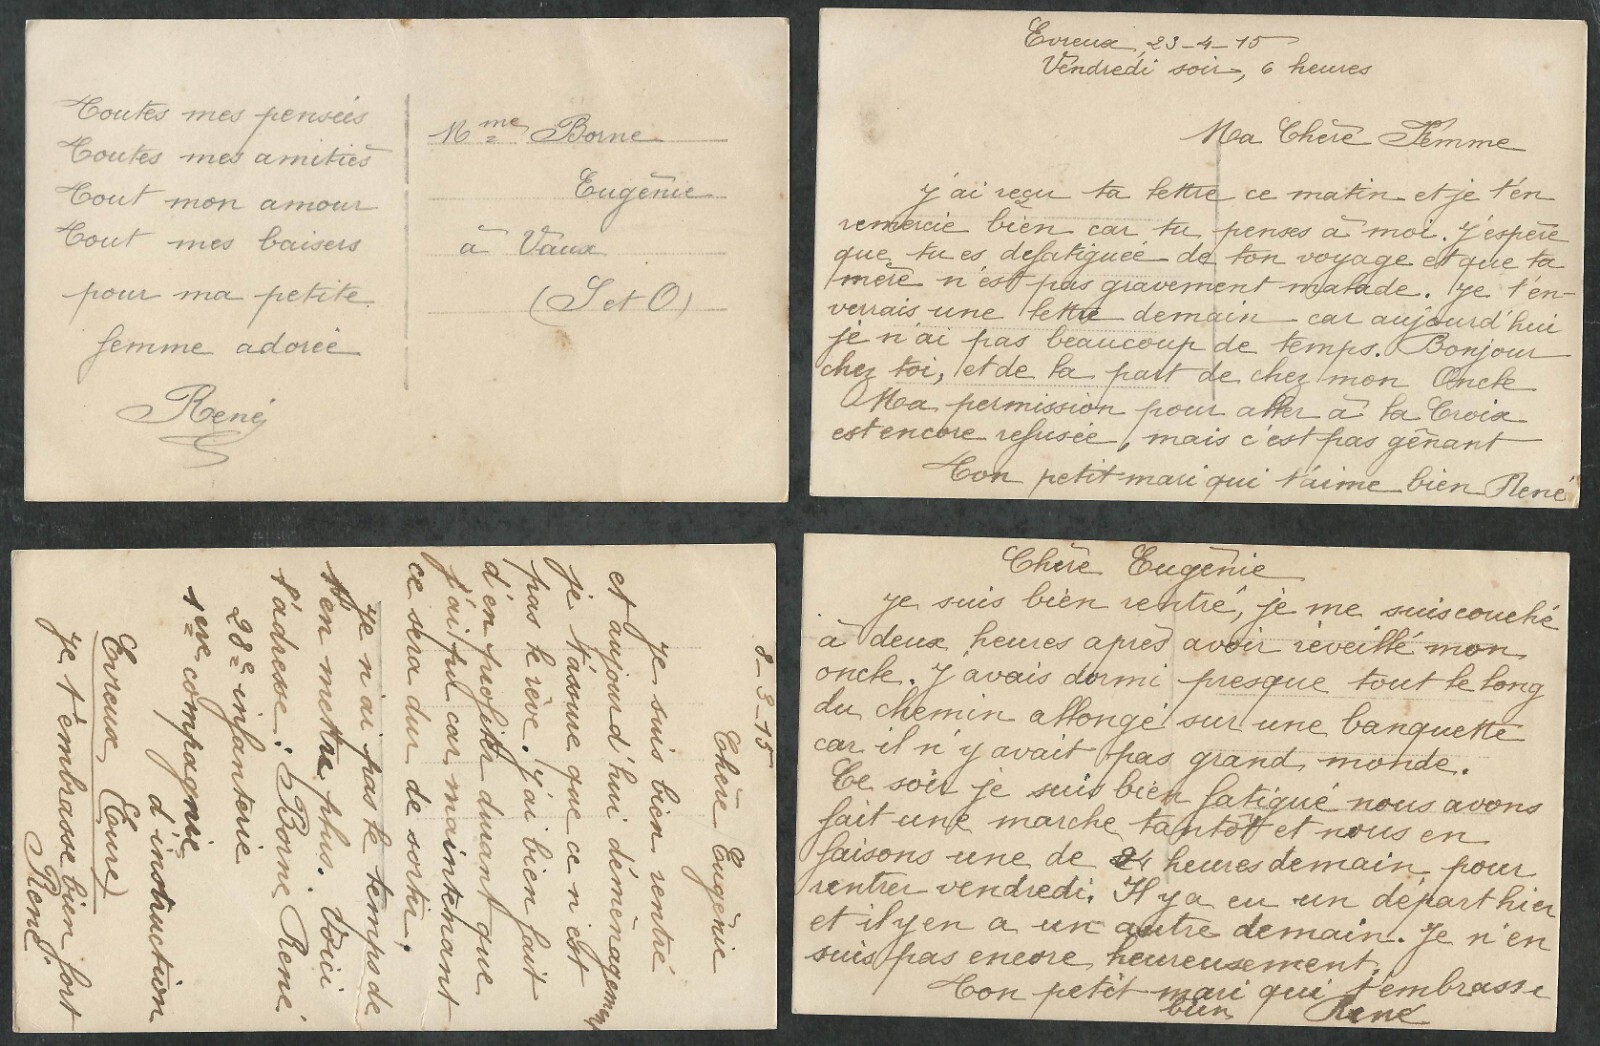 Toutes mes pensées
Toutes mes amitiés
Tout mon amour
Tout mes baisers
pour ma petite
femme adorée
René
Mme Borne
Eugénie
à Vaux
(S et O)
Evreux, 23-4-15
Vendredi soir, 6 heures
Ma Chère Femme
J'ai reçu ta lettre ce matin et je t'en
remercie bien car tu penses à moi. J'espère
que tu es defatiguée de ton voyage et que ta
mère n'est pas gravement malade. Je t'en-
verrais une lettre demain car aujourd'hui
je n'ai pas beaucoup de temps. Bonjour
chez toi, et de la part de chez mon Oncle
Ma permission pour aller à la Croix
est encore refusée, mais c'est pas gênant
Ton petit mari qui t'aime bien René
8-3-15
Chère Eugénie
Je suis bien rentré
et aujourd'hui déménagement
je t'assure que ce n'est
pas le rêve. J'ai bien fait
d'en profiter durant que
j'ai pu car maintenant
ce sera dur de sortir.
Je n'ai pas le temps de
t'en mettre plus. Voici
l'adresse: Borne René
28e infanterie
1ere compagnie
d'instruction
Evreux (Eure)
Je t'embrasse bien fort
René
Chère Eugénie
Je suis bien rentré, je me suis couché
à deux heures après avoir réveillé mon
oncle. J'avais dormi presque tout le long
du chemin allongé sur une banquette
car il n'y avait pas grand monde.
Ce soir je suis bien fatigué nous avons
fait une marche tantôt et nous en
faisons une de 24 heures demain pour
rentrer vendredi. Il y a eu un départ hier
et il y en a un autre demain. Je n'en
suis pas encore heureusement.
Ton petit mari qui t'embrasse
bien René